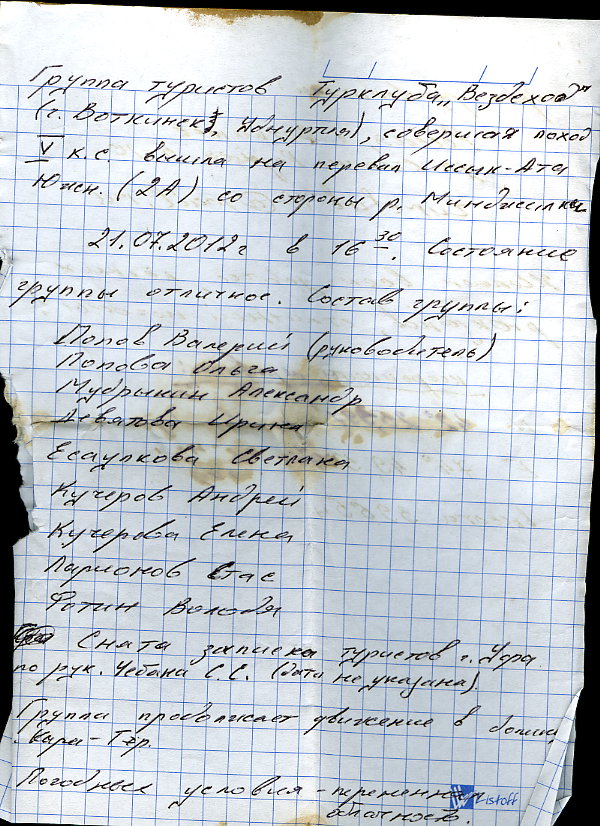 Группа туристов Турклуба „Вездеход"
(г. Воткинск, Удмуртия), совершая поход
V к.с. вышла на перевал Иссык-Ата
Южн. (2А) со стороны р. Минджилки
21.07.2012г в 16 30. Состояние
группы отличное. Состав группы:
Попов Валерий (руководитель)
Попова Ольга
Мудрынин Александр
Девятова Ирина
Есаулкова Светлана
Кучеров Андрей
Кучерова Елена
Ларионов Стас
Фотин Володя
Снята записка туристов г. Уфа
по рук. Чебана С.С. (дата не указана).
Группа продолжает движение в долину
Кара-Тор.
Погодные условия - переменная
облачность.
Listoff